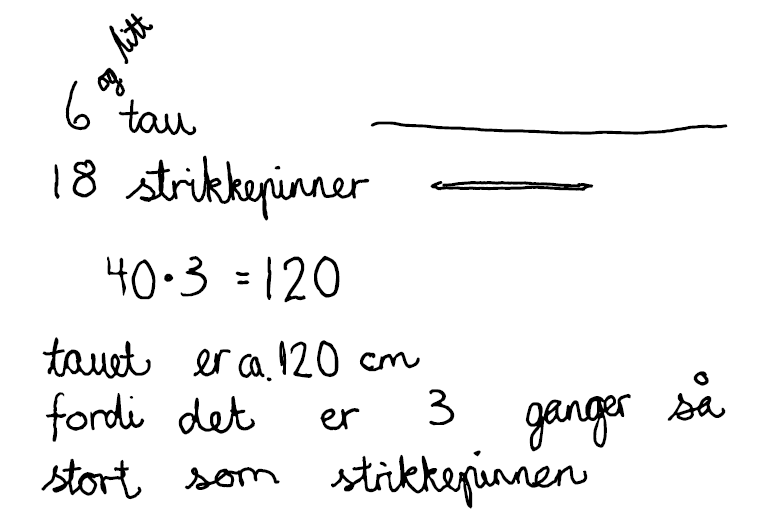 6 og litt tau
18 strikkepinner
40·3 = 120
tauet er ca. 120 cm
fordi det er 3 ganger så
stort som strikkepinnen